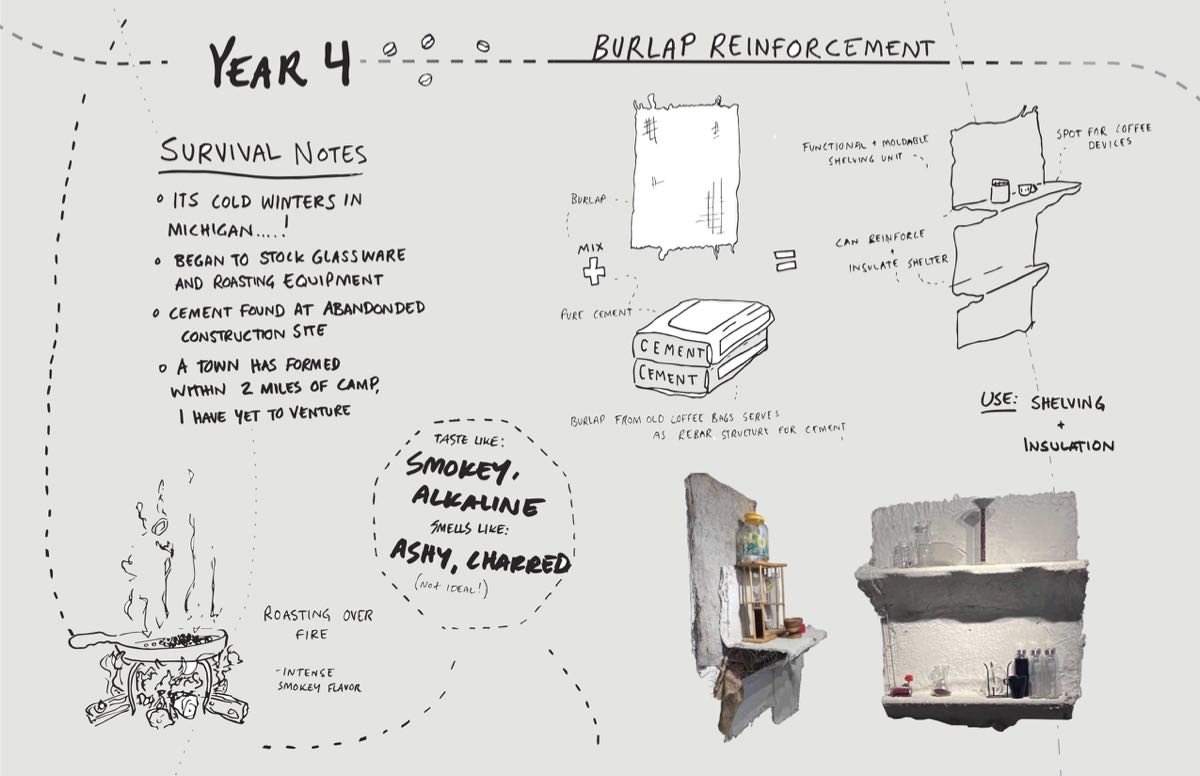 YEAR 4
BURLAP REINFORCEMENT
SURVIVAL NOTES
ITS COLD WINTERS IN
MICHIGAN.....!
BEGAN TO STOCK GLASSWARE
AND ROASTING EQUIPMENT
CEMENT FOUND AT ABANDONDED
CONSTRUCTION SITE
A TOWN HAS FORMED
WITHIN 2 MILES OF CAMP,
I HAVE YET TO VENTURE
BURLAP
MIX
+
PURE CEMENT
CEMENT
CEMENT
=
BURLAP FROM OLD COFFEE BAGS SERVES
AS REBAR STRUCTURE FOR CEMENT
FUNCTIONAL + MOLDABLE
SHELVING UNIT
SPOT FOR COFFEE
DEVICES
CAN REINFORCE
+
INSULATE SHELTER
USE: SHELVING
+
INSULATION
TASTE LIKE:
SMOKEY,
ALKALINE
SMELLS LIKE:
ASHY, CHARRED
(NOT IDEAL!)
ROASTING OVER
FIRE
-INTENSE
SMOKEY FLAVOR